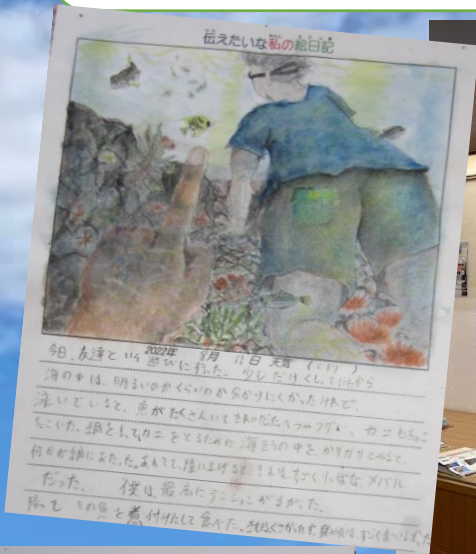 伝えたいな私の絵日記
2022年 8月 日 天気 (くもり)
今日、友達と 遊びに行った。少しだけくもっていたから
海の中は、明るいのかくらいのか分かりにくかったけれど、
泳いでいると、魚がたくさんいてきれいだった。 フグ、カニも
いた。網をもってカニをとるために海そうの中をガリガリとやると、
何かが網にあたった。あわてて、陸に上げると、それは、すごくりっぱな、メバル
だった。 僕は最高にテンションがあがった。
帰って その魚を煮付けにして食べた。